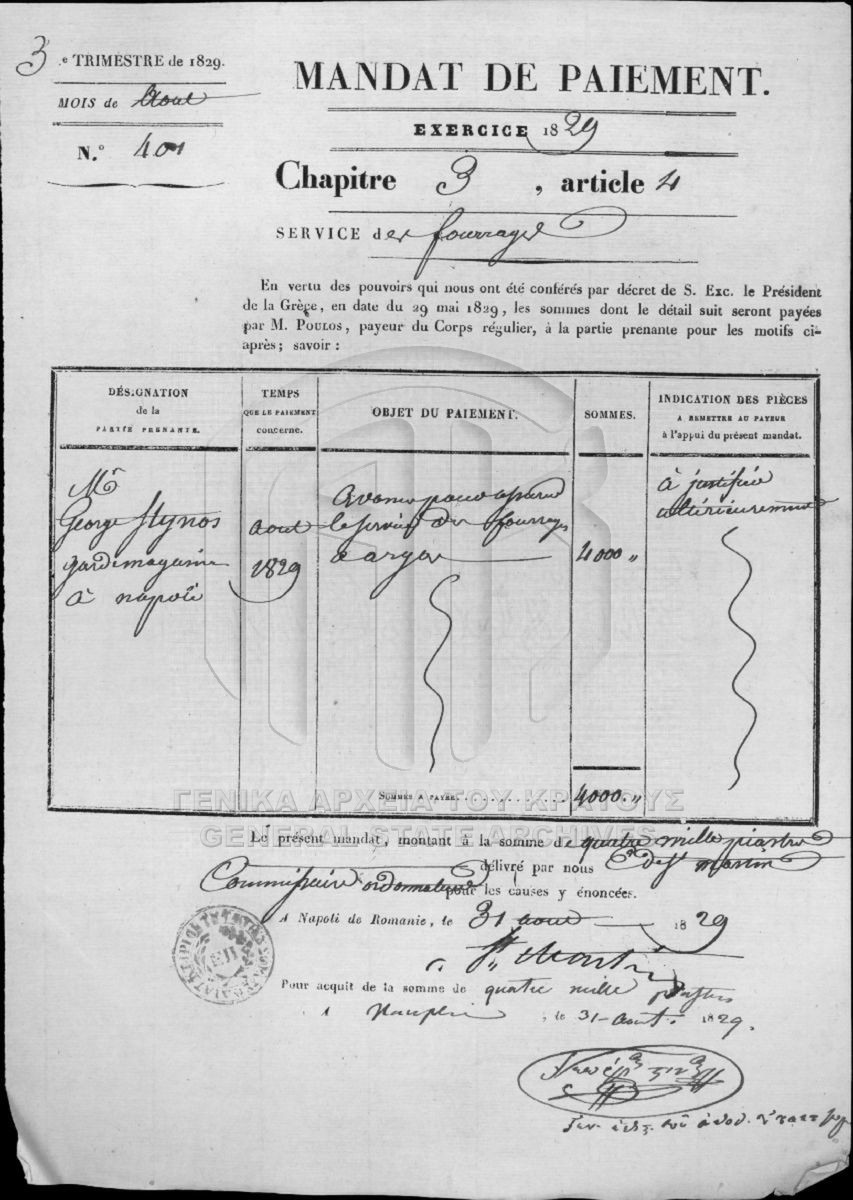 3.e TRIMESTRE de 1829.
MOIS de Aout
N.° 401
MANDAT DE PAIEMENT.
EXERCICE 1829
Chapitre 3, article 4
SERVICE des fourrages
En vertu des pouvoirs qui nous ont été conférés par décret de S. Exc. le Président
de la Grèce, en date du 29 mai 1829, les sommes dont le détail suit seront payées
par M. POULOS, payeur du Corps régulier, à la partie prenante pour les motifs ci-
après; savoir :
DÉSIGNATION
de la
PARTIE PRENANTE.
TEMPS
QUE LE PAIEMENT
concerne.
OBJET DU PAIEMENT.
SOMMES.
INDICATION DES PIÈCES
A REMETTRE AU PAYEUR
à l'appui du présent mandat.
Mr
George Stynos
garde magasin
à napoli
aout
1829
avance pour assurer
le service des fourrages
a argos
4000 "
à justifier
ultérieurement
SOMMES A PAYER. 4000. "
ΓΕΝΙΚΑ ΑΡΧΕΙΑ ΤΟΥ ΚΡΑΤΟΥΣ
GENERAL STATE ARCHIVES
Le présent mandat, montant à la somme de quatre mille piastres
délivré par nous de St Martin
Commissaire ordonnateur pour les causes y énoncées.
A Napoli de Romanie, le 31 aout 1829
St Martin
Pour acquit de la somme de quatre mille piastres
A Nauplie, le 31 aout 1829.